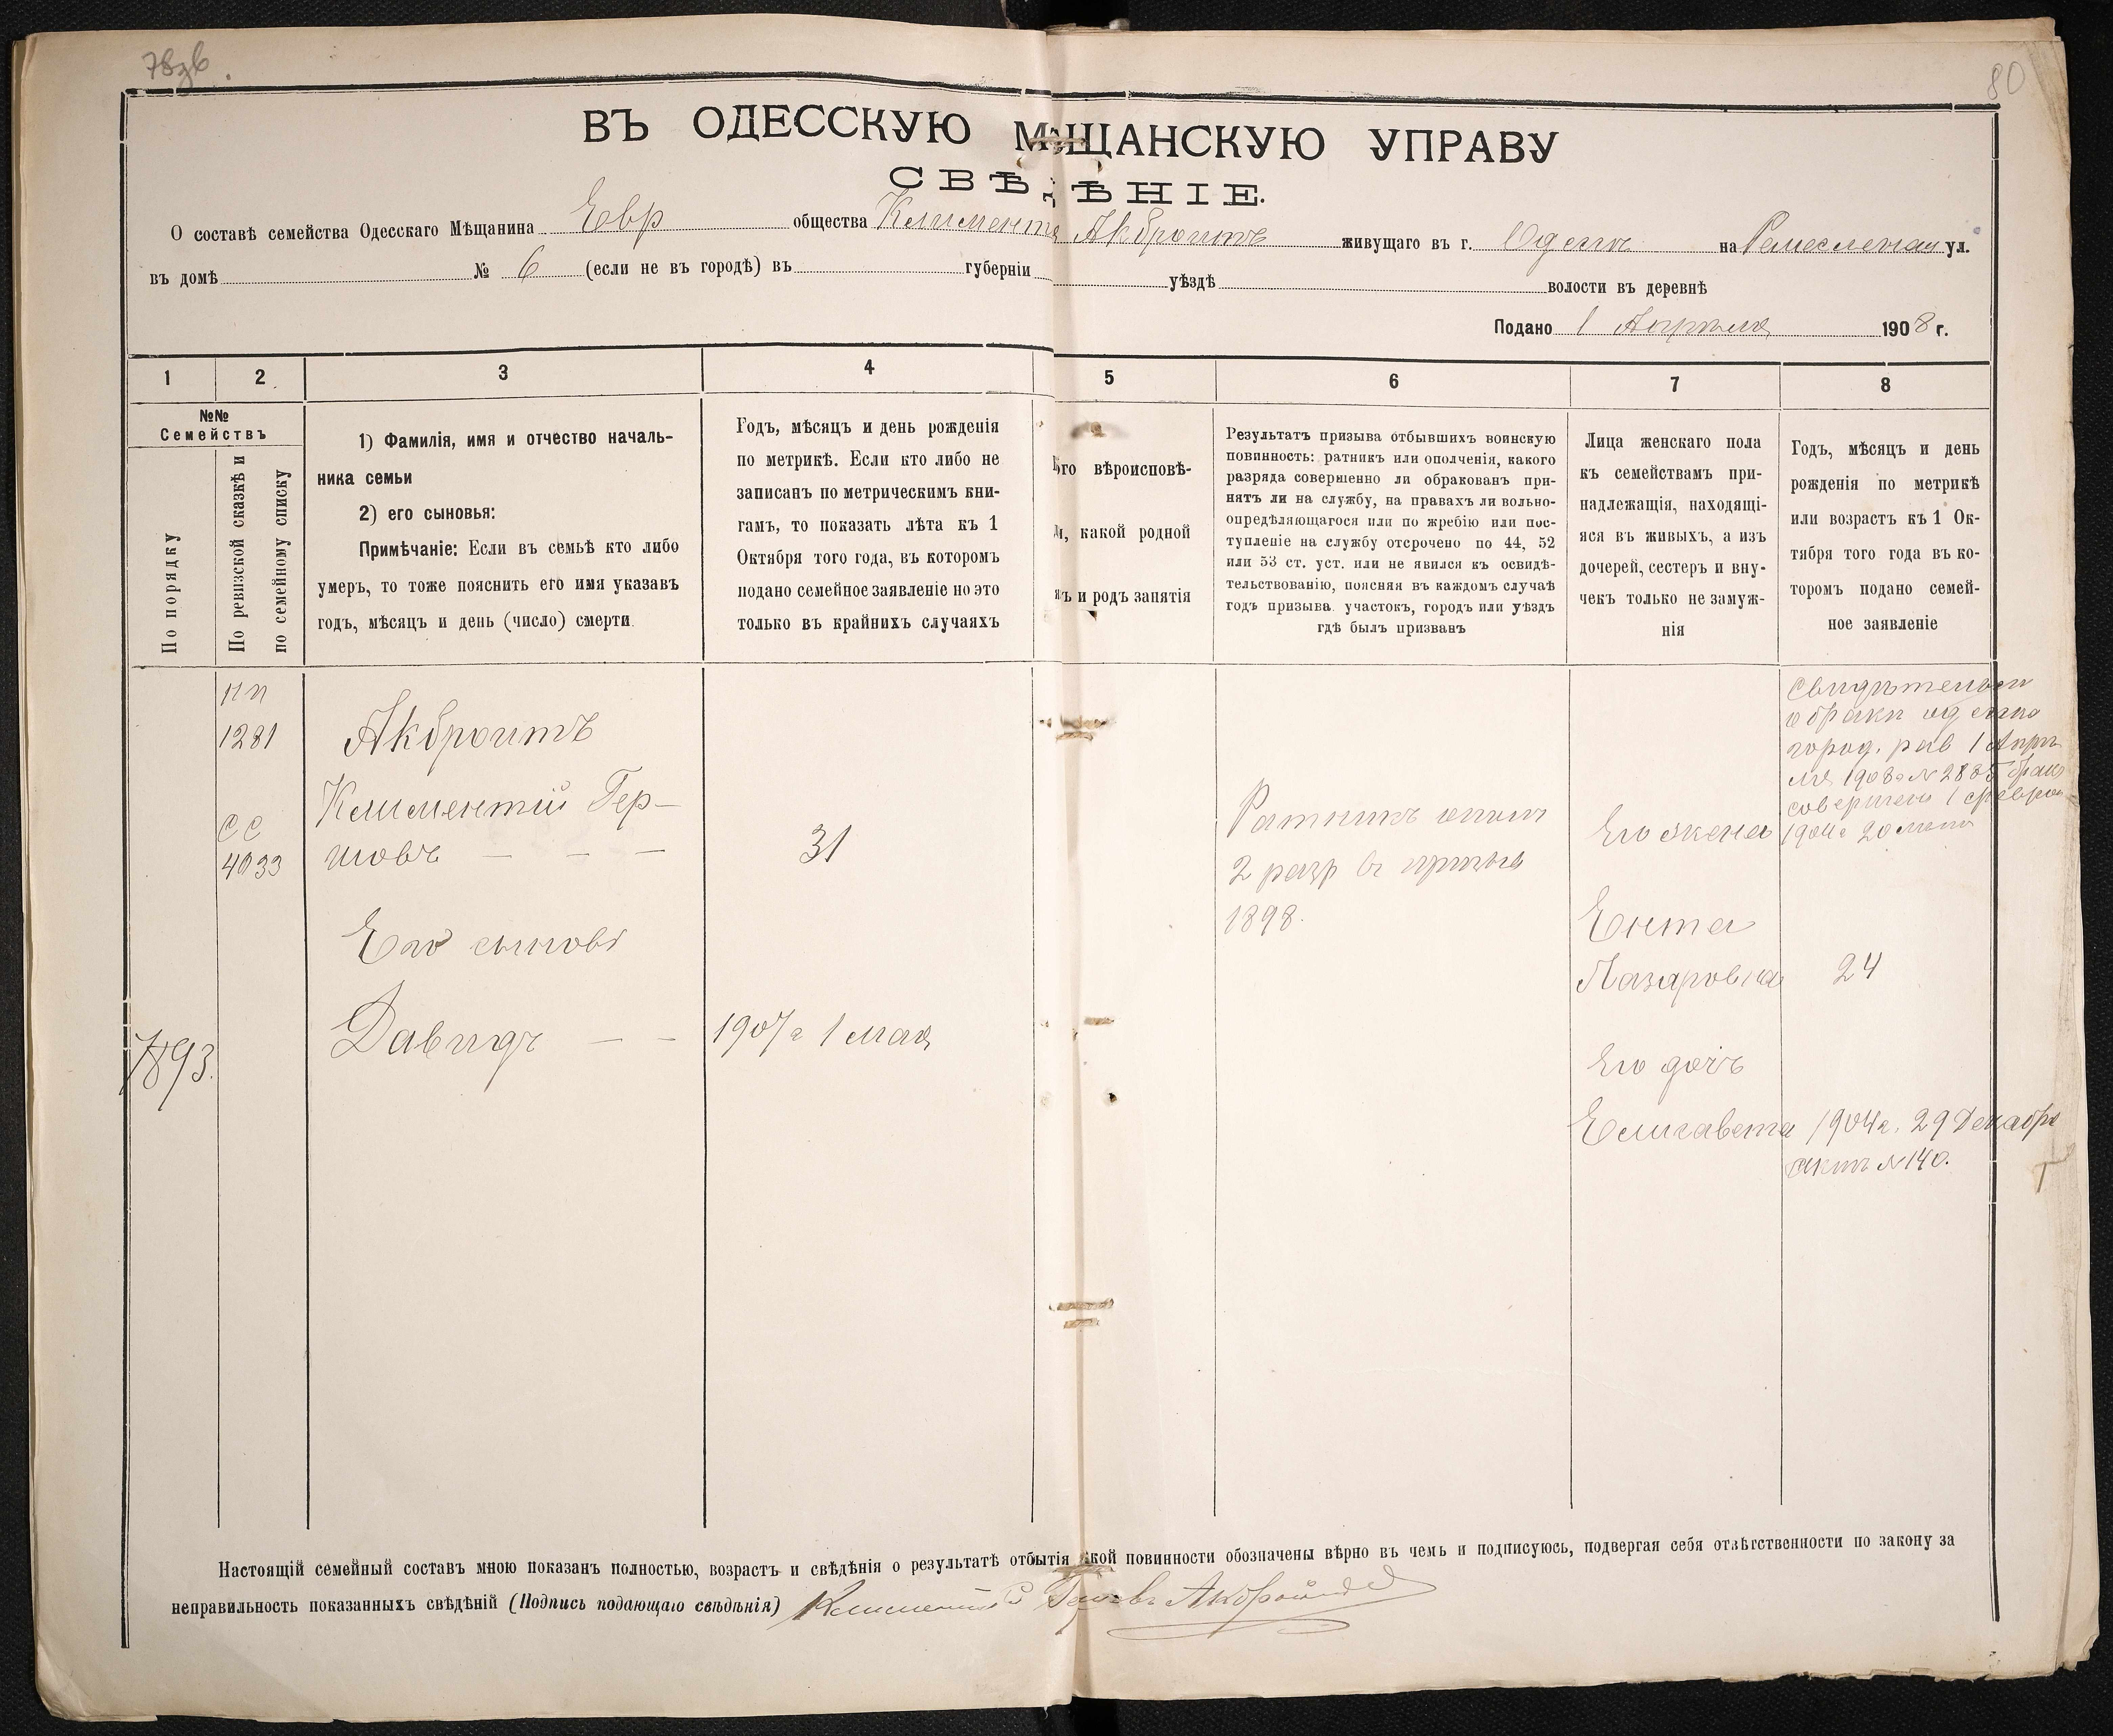 80
ВЪ ОДЕССКУЮ МѢЩАНСКУЮ УПРАВУ
СВѢДѢНІЕ.
О составѣ семейства Одесскаго Мѣщанина Евр общества Климентія Акбройтъ живущаго въ г. Одессѣ на Ремесленая ул.
въ домѣ № 6 (если не въ городѣ) въ губерніи уѣздѣ волости въ деревнѣ
Подано 1 Апрѣля 1908 г.
1 2 3 4 5 6 7 8
№№
Семействъ
По порядку
По ревизской сказкѣ и
по семейному списку
1) Фамилія, имя и отчество началь-
ника семьи
2) его сыновья:
Примѣчаніе: Если въ семьѣ кто либо
умеръ, то тоже пояснить его имя указавъ
годъ, мѣсяцъ и день (число) смерти.
Годъ, мѣсяцъ и день рожденія
по метрикѣ. Если кто либо не
записанъ по метрическимъ кни-
гамъ, то показать лѣта къ 1
Октября того года, въ котором
подано семейное заявленіе но это
только въ крайнихъ случаяхъ
го вѣроисповѣ-
и, какой родной
ъ и родъ занятія
Результатъ призыва отбывшихъ воинскую
повинность: ратникъ или ополченія, какого
разряда совершенно ли обракованъ при-
нятъ ли на службу, на правахъ ли вольно-
опредѣляющагося или по жребію или пос-
тупленіе на службу отсрочено по 44, 52
или 53 ст. уст. или не явился къ освидѣ-
тельствованію, поясняя въ каждомъ случаѣ
годъ призыва участокъ, городъ или уѣздъ
гдѣ былъ призванъ
Лица женскаго пола
къ семействамъ при-
надлежащія, находящі-
яся въ живыхъ, а изъ
дочерей, сестеръ и вну-
чекъ только не замуж-
нія
Годъ, мѣсяцъ и день
рожденія по метрикѣ
или возрастъ къ 1 Ок-
тября того года въ ко-
торомъ подано семей-
ное заявленіе
1281
СС
4033
7893.
Акбройтъ
Климентій Гер-
шовъ — — —
Его сыновья
Давидъ — —
31
1907 г 1 мая
Ратникъ опол
2 разр въ призывѣ
1898.
Его жена
Ента
Лазаровна
Его дочь
Елисавета
Свидѣтельст
о бракѣ одесскаго
город. рав 1 Апрѣ
ля 1908 г № 2885 бракъ
совершенъ 1 Февра
1904 г
24
1904 г. 29 Декабря
актъ № 140.
Настоящій семейный составъ мною показанъ полностью, возрастъ и свѣдѣнія о результатѣ отбытія кой повинности обозначены вѣрно въ чемъ и подписуюсь, подвергая себя отвѣтственности по закону за
неправильность показанныхъ свѣдѣній (Подпись подающаго свѣдѣнія) Климентій Гершовъ Акбройтъ